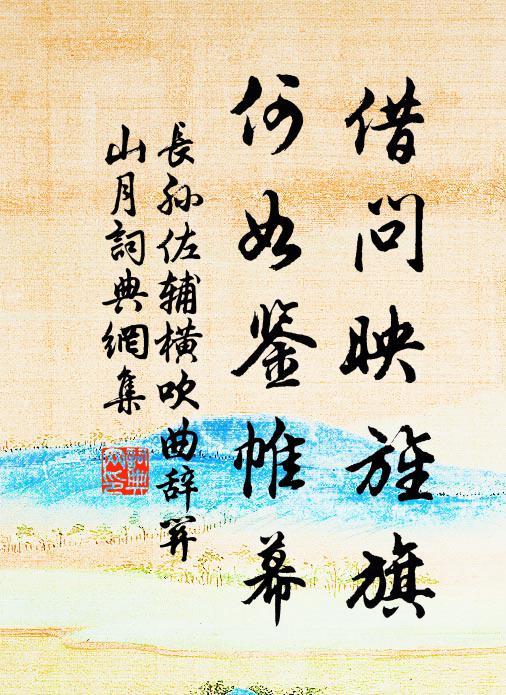 借问映旌旗
何如鉴帷幕
長孙佐辅横吹曲辞关
山月詞典網集